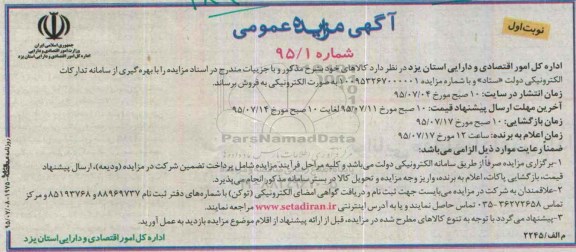 نوبت اول
آگهی مزایده عمومی
شماره ۹۵/۱
جمهوری اسلامی ایران
وزارت امور اقتصادی و دارایی
اداره کل امور اقتصادی و دارایی استان یزد
اداره کل امور اقتصادی و دارایی استان یزد در نظر دارد کالاهای خود بشرح مذکور و با جزییات مندرج در اسناد مزایده را با بهره گیری از سامانه تدارکات
الکترونیکی دولت «ستاد» و با شماره مزایده ۱۰۰۹۵۳۲۶۷۰۰۰۰۰۱ به صورت الکترونیکی به فروش برساند.
زمان انتشار در سایت: ۱۰ صبح مورخ ۹۵/۰۷/۰۴
آخرین مهلت ارسال پیشنهاد قیمت: ۱۰ صبح مورخ ۹۵/۰۷/۱۱ لغایت ۱۰ صبح مورخ ۹۵/۰۷/۱۴
زمان بازگشایی: ۱۰ صبح مورخ ۹۵/۰۷/۱۷
زمان اعلام به برنده: ساعت ۱۲ مورخ ۹۵/۰۷/۱۷
ضمنا رعایت موارد ذیل الزامی می‌باشد:
۱-برگزاری مزایده صرفاً از طریق سامانه الکترونیکی دولت می‌باشد و کلیه مراحل فرآیند مزایده شامل پرداخت تضمین شرکت در مزایده (ودیعه)، ارسال پیشنهاد
قیمت، بازگشایی پاکات، اعلام به برنده، واریز وجه مزایده و تحویل کالا در بستر سامانه مذکور انجام می‌پذیرد.
۲-علاقمندان به شرکت در مزایده می‌بایست جهت ثبت نام و دریافت گواهی امضای الکترونیکی (توکن) با شماره‌های دفتر ثبت نام ۸۸۹۶۹۷۳۷ و ۸۵۱۹۳۷۶۸ و مرکز
تماس ۳۶۲۷۲۶۵۸-۰۳۵ تماس حاصل نمایند و یا به آدرس اینترنتی www.setadiran.ir مراجعه نمایند.
۳-پیشنهاد می گردد با توجه به تنوع کالاهای مطرح شده در مزایده، قبل از ارائه پیشنهاد از اقلام موضوع مزایده بازدید به عمل آورید.
م الف/۲۲۴۵
اداره کل امور اقتصادی و دارایی استان یزد
ParsNamadData